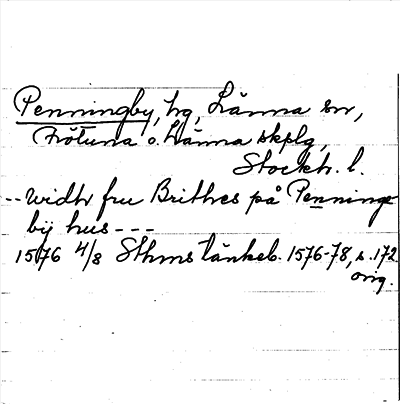 Penningby, hg, Länna sn,
Frötuna o. Länna skplg,
Stockh. l.
-- widh fru Brithes på Penninge-
bij hus ---
1576 4/8 Sthms tänkeb. 1576-78, s. 172
orig.